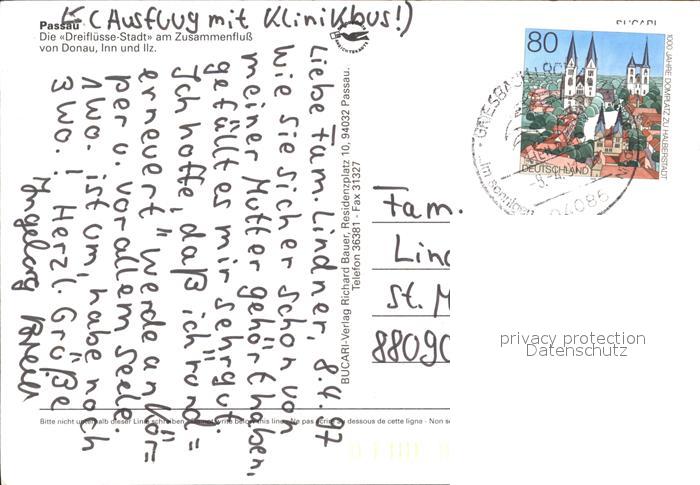 ← (Ausflug mit Klinikbus!)
Passau
Die «Dreiflüsse-Stadt» am Zusammenfluß
von Donau, Inn und Ilz.
8.4.97
Liebe Fam. Lindner,
wie sie sicher schon von
meiner Mutter gehört haben,
gefällt es mir sehr gut.
Ich hoffe, daß ich "rund=
erneuert" werde an Kör=
per u. vor allem Seele.
1 Wo. ist um, habe noch
3 Wo.! Herzl. Grüße
Ingeborg
BUCARI-Verlag Richard Bauer, Residenzplatz 10, 94032 Passau.
Telefon 36381 - Fax 31327
80
1000 JAHRE DOMPLATZ ZU HALBERSTADT
DEUTSCHLAND
94086
Fam.
Lin
St. M
88090
privacy protection
Datenschutz
Bitte nicht unterhalb dieser Linie schreiben
Ne pas écrire au dessous de cette ligne